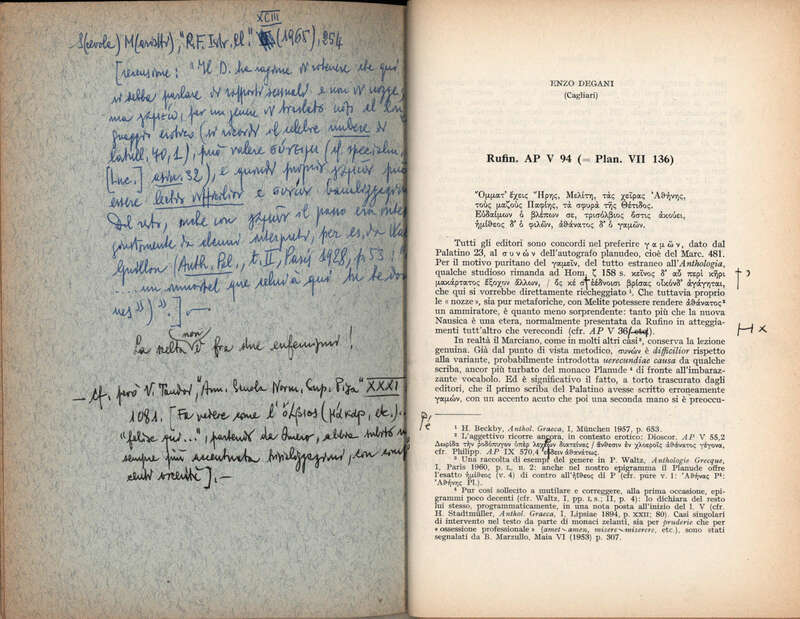 XCIII
S(cevola) M(ariotti), "R.F. Istr. Cl." (1965), 254
[recensione: "Il D. ha ragione di ritenere che qui
si debba parlare di rapporti sessuali e non di nozze
ma γαμέω, per un genere di traslato noto al lin
guaggio erotico (si ricordi il celebre nubere di
Catull. 70, 1), può valere σύνειμι (cf. specialm.
[Luc.] asin. 32), e quindi proprio γαμῶν può
essere lectio difficilior e συνών banalizzazione
Del resto, anche con γαμῶν il passo era inte
giustamente da alcuni interpreti, per es. da
Guillon (Anth. Pal., t. II, Paris 1928, p. 53:
..... un immortel que celui à qui tu te do
nes »)".]
La scelta non è fra due eufemismi!
– cf. però V. Tandoi, "Ann. Scuola Norm. Sup. Pisa" XXXI
1081. [Fa vedere come l'ὄλβιος (μάκαρ, etc.)...
"felice qui...", partendo da Omero, abbia subito
sempre più accentuata banalizzazione, con
].–
ENZO DEGANI
(Cagliari)
Rufin. AP V 94 (= Plan. VII 136)
Ὄμματ' ἔχεις Ἥρης, Μελίτη, τὰς χεῖρας Ἀθήνης,
τοὺς μαζοὺς Παφίης, τὰ σφυρὰ τῆς Θέτιδος.
Εὐδαίμων ὁ βλέπων σε, τρισόλβιος ὅστις ἀκούει,
ἡμίθεος δ' ὁ φιλῶν, ἀθάνατος δ' ὁ γαμῶν.
Tutti gli editori sono concordi nel preferire γαμῶν, dato dal
Palatino 23, al συνών dell'autografo planudeo, cioè del Marc. 481.
Per il motivo puritano del γαμεῖν, del tutto estraneo all'Anthologia,
qualche studioso rimanda ad Hom. ζ 158 s. κεῖνος δ' αὖ περὶ κῆρι
μακάρτατος ἔξοχον ἄλλων, / ὅς κέ σ' ἐέδνοισι βρίσας οἶκόνδ' ἀγάγηται,
che qui si vorrebbe direttamente riecheggiato ¹. Che tuttavia proprio
le « nozze », sia pur metaforiche, con Melite potessero rendere ἀθάνατος ²
un ammiratore, è quanto meno sorprendente: tanto più che la nuova
Nausica è una etera, normalmente presentata da Rufino in atteggia-
menti tutt'altro che verecondi (cfr. AP V 36 etc.).
In realtà il Marciano, come in molti altri casi ³, conserva la lezione
genuina. Già dal punto di vista metodico, συνών è difficilior rispetto
alla variante, probabilmente introdotta uerecundiae causa da qualche
scriba, ancor più turbato del monaco Planude ⁴ di fronte all'imbaraz-
zante vocabolo. Ed è significativo il fatto, a torto trascurato dagli
editori, che il primo scriba del Palatino avesse scritto erroneamente
γαμών, con un accento acuto che poi una seconda mano si è preoccu-
¹ H. Beckby, Anthol. Graeca, I, München 1957, p. 653.
² L'aggettivo ricorre ancora, in contesto erotico: Dioscor. AP V 55,2
Δωρίδα τὴν ῥοδόπυγον ὑπὲρ λεχέων διατείνας / ἄνθεσιν ἐν χλοεροῖς ἀθάνατος γέγονα,
cfr. Philipp. AP IX 570,4 εὕδειν ἀθανάτως.
³ Una raccolta di esempi del genere in P. Waltz, Anthologie Grecque,
I, Paris 1960, p. L, n. 2: anche nel nostro epigramma il Planude offre
l'esatto ἡμίθεος (v. 4) di contro all'ἤθεος di P (cfr. pure v. 1: Ἀθήνας P¹:
Ἀθήνης Pl.).
⁴ Pur così sollecito a mutilare e correggere, alla prima occasione, epi-
grammi poco decenti (cfr. Waltz, I pp. L s.; II, p. 4): lo dichiara del resto
lui stesso, programmaticamente, in una nota posta all'inizio del l. V (cfr.
H. Stadtmüller, Anthol. Graeca, I, Lipsiae 1894, p. XXII; 80). Casi singolari
di intervento nel testo da parte di monaci zelanti, sia per pruderie che per
« ossessione professionale » (amet∼amen, misere∼miserere, etc.), sono stati
segnalati da B. Marzullo, Maia VI (1953) p. 307.